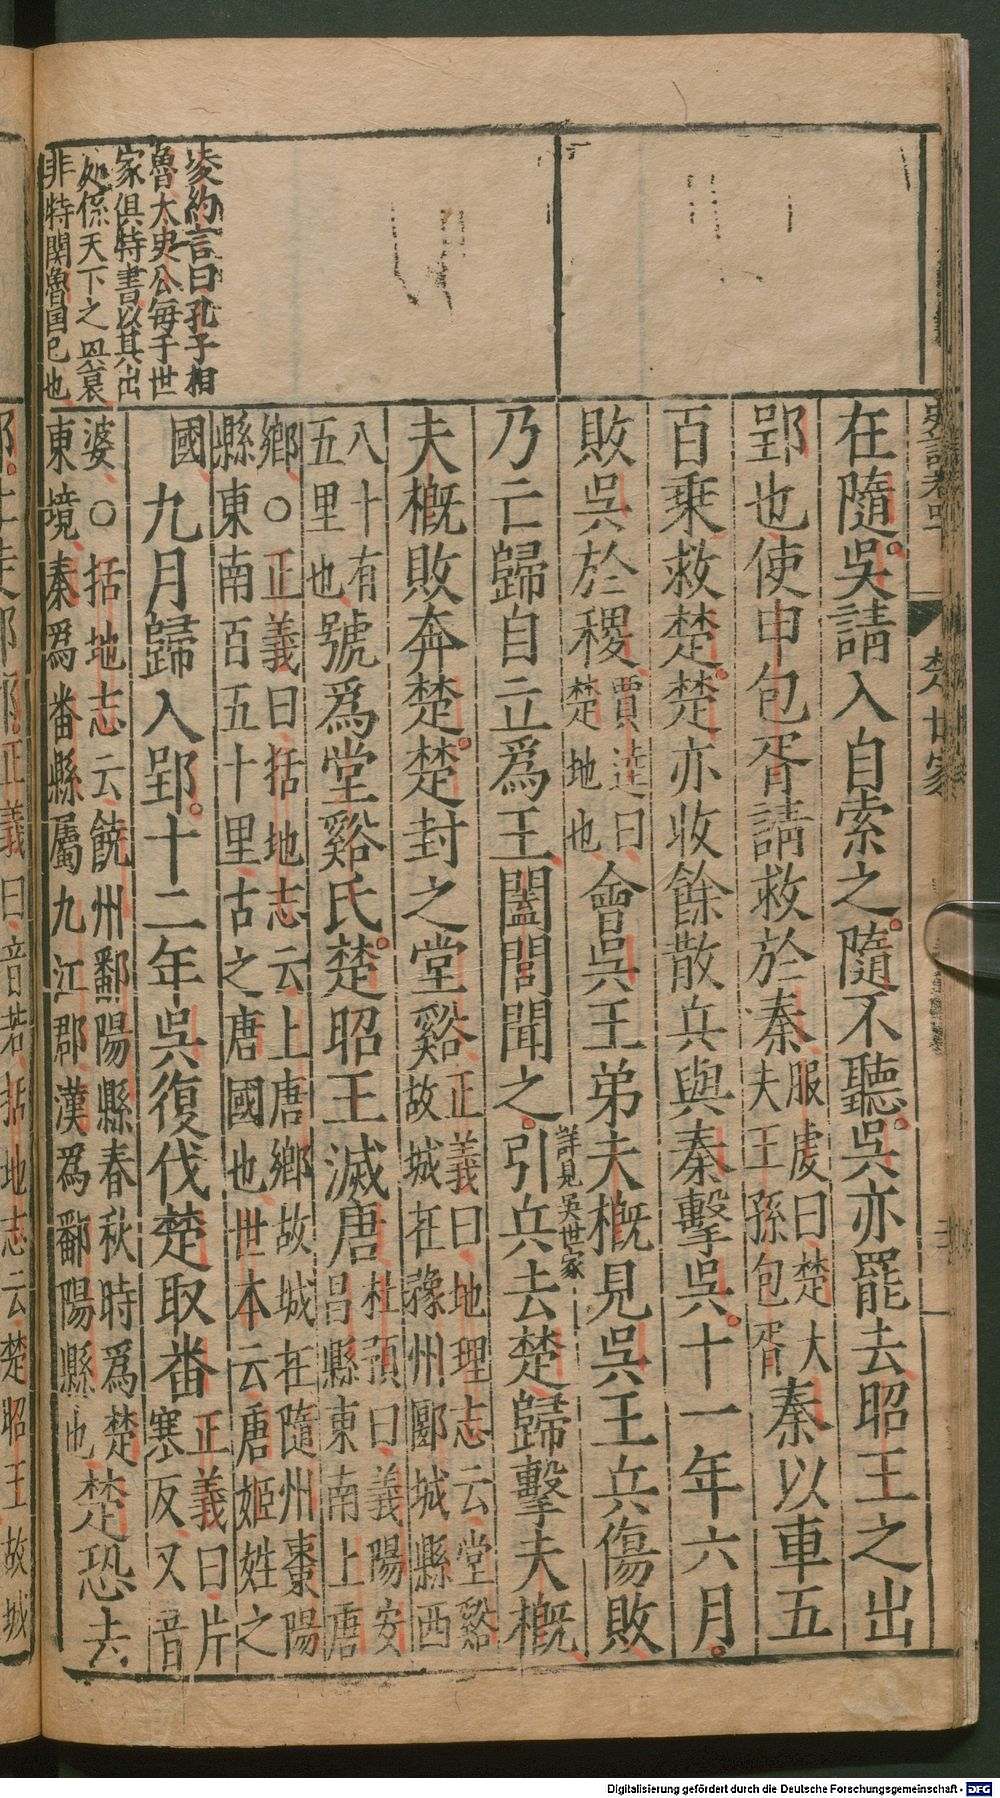 凌約言曰孔子相
魯太史公每于世
家俱特書以其出
処係天下之盛衰
非特関魯国已也
楚世家
在隨吳請入自索之隨不聽吳亦罷去昭王之出
郢也使申包胥請救於秦服虔曰楚大夫王孫包胥秦以車五
百乘救楚楚亦收餘散兵與秦擊吳十一年六月
敗吳於稷賈逵曰楚地也會吳王弟夫概見吳王兵傷敗
乃亡歸自立爲王闔閭聞之詳見吳世家引兵去楚歸擊夫概
夫概敗奔楚楚封之堂谿正義曰地理志云堂谿故城在豫州郾城縣西
八十有五里也號爲堂谿氏楚昭王滅唐杜預曰義陽安昌縣東南上唐
鄉○正義曰括地志云上唐鄉故城在隨州棗陽縣東南百五十里古之唐國也世本云唐姬姓之
國九月歸入郢十二年吳復伐楚取番正義曰片寒反又音
婆○括地志云饒州鄱陽縣春秋時爲楚東境秦爲番縣屬九江郡漢爲鄱陽縣也楚恐去
正義曰音若括地志云楚昭王故城
Digitalisierung gefördert durch die Deutsche Forschungsgemeinschaft - DFG